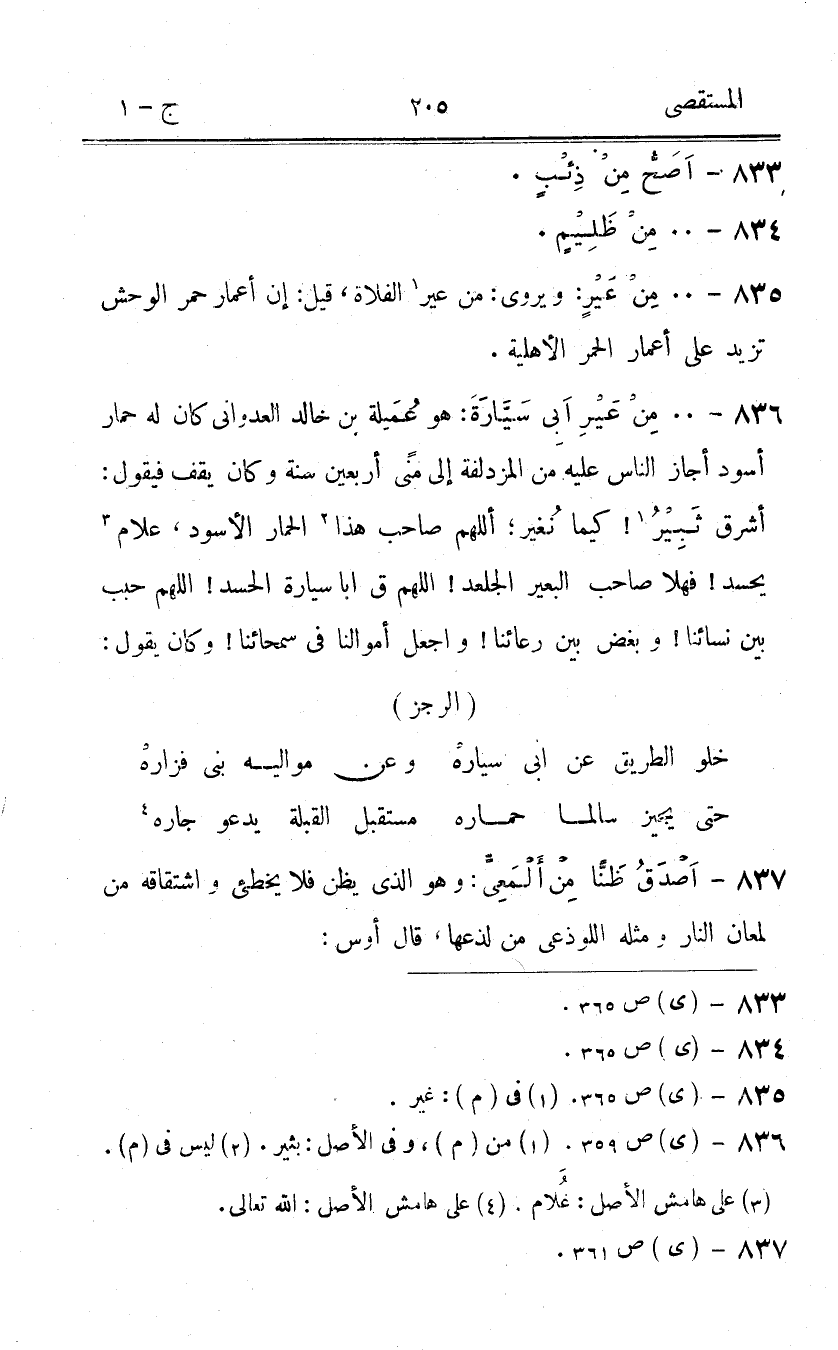 المستقصى ٢٠٥ ج – ١
٨٣٣ – اَصَحُّ مِنْ ذِئْبٍ .
٨٣٤ – ٠٠ مِنْ ظَلِيْمٍ .
٨٣٥ – ٠٠ مِنْ عَيْرٍ: و يروى: من عير١ الفلاة، قيل: إن أعمار حمر الوحش
تزيد على أعمار الحمر الأهلية .
٨٣٦ – ٠٠ مِنْ عَيْرِ اَبِى سَيَّارَةَ: هو عُمَيلة بن خالد العدوانى كان له حمار
أسود أجاز الناس عليه من المزدلفة إلى مِنًى أربعين سنة و كان يقف فيقول:
أشرق ثَبِيْرُ١! كيما نُغير؛ أللهم صاحب هذا٢ الحمار الأسود، علام٣
يحسد! فهلا صاحب البعير الجلعد! اللهم ق ابا سيارة الحسد! اللهم حبب
بين نسائنا! و بغض بين رعائنا! و اجعل أموالنا فى سمحائنا! و كان يقول:
( الرجز )
خلو الطريق عن ابى سيارهْ و عن مواليــه بنى فزارهْ
حتى يجيز سالمـا حمـاره مستقبل القبلة يدعو جاره٤
٨٣٧ – اَصْدَقُ ظَنًّا مِنْ أَلْمَعِىٍّ: و هو الذى يظن فلا يخطئ و اشتقاقه من
لمعان النار و مثله اللوذعى من لذعها، قال أوس:
٨٣٣ – (ى) ص ٣٦٥ .
٨٣٤ – (ى) ص ٣٦٥ .
٨٣٥ – (ى) ص ٣٦٥. (١) فى (م) : غير .
٨٣٦ – (ى) ص ٣٥٩ . (١) من (م)، و فى الأصل: بثير . (٢) ليس فى (م).
(٣) على هامش الأصل : غُلَام . (٤) على هامش الأصل : الله تعالى.
٨٣٧ – (ى) ص ٣٦١ .